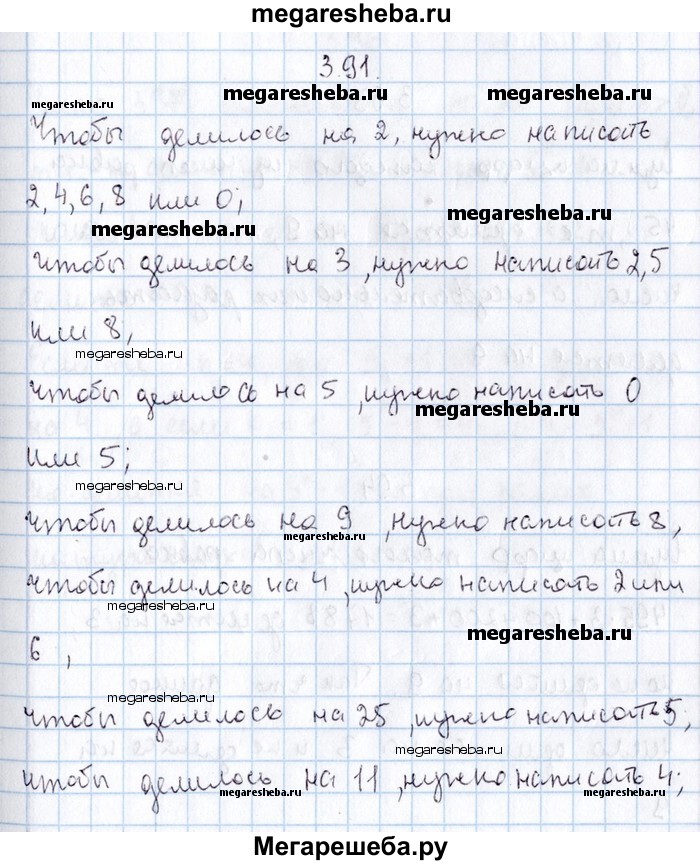 megaresheba.ru
3.91.
megaresheba.ru megaresheba.ru
megaresheba.ru
Чтобы делилось на 2, нужно написать
2, 4, 6, 8 или 0;
megaresheba.ru
megaresheba.ru
Чтобы делилось на 3, нужно написать 2, 5
или 8,
megaresheba.ru
Чтобы делилось на 5, нужно написать 0
megaresheba.ru
megaresheba.ru
или 5;
Чтобы делилось на 9, нужно написать 8,
megaresheba.ru
Чтобы делилось на 4, нужно написать 2 или
megaresheba.ru
6,
megaresheba.ru
megaresheba.ru
Чтобы делилось на 25, нужно написать 5,
megaresheba.ru
Чтобы делилось на 11, нужно написать 4;
Мегарешеба.ру